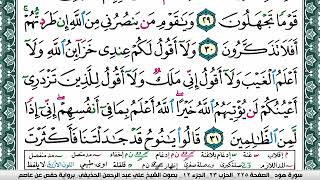 قَوْمًا تَجْهَلُونَ ٢٩ وَيَٰقَوْمِ مَن يَنصُرُنِي مِنَ ٱللَّهِ إِن طَرَدتُّهُمْ
أَفَلَا تَذَكَّرُونَ ٣٠ وَلَا أَقُولُ لَكُمْ عِندِى خَزَآئِنُ ٱللَّهِ وَلَا
أَعْلَمُ ٱلْغَيْبَ وَلَا أَقُولُ إِنِّى مَلَكٌ وَلَا أَقُولُ لِلَّذِينَ تَزْدَرِى
أَعْيُنُكُمْ لَن يُؤْتِيَهُمُ ٱللَّهُ خَيْرًا ٱللَّهُ أَعْلَمُ بِمَا فِى أَنفُسِهِمْ إِنِّى إِذًا
لَّمِنَ ٱلظَّٰلِمِينَ ٣١ قَالُوا۟ يَٰنُوحُ قَدْ جَٰدَلْتَنَا فَأَكْثَرْتَ
سورة هود - الصفحة ٢٢٥ - الحزب ٢٣ - الجزء ١٢ - بصوت الشيخ علي عبد الرحمن الحذيفي - برواية حفص عن عاصم